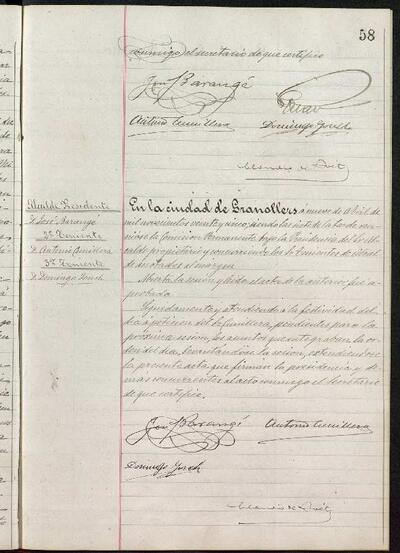 58
conmigo el secretario de que certifico
José Barangé
Antonio Cumellera
Domingo Jonch
Alcalde Presidente
D. José Barangé
2º Teniente
D. Antonio Cumellera
3er Teniente
D. Domingo Jonch
En la ciudad de Granollers á nueve de Abril de
mil novecientos veinte y cinco, siendo las siete de la tarde, se
reunió la Comision Permanente, bajo la Presidencia del Sr. Al-
calde propietario y concurriendo los Sres Tenientes de alcalde
anotados al margen.
Abierta la sesion y leida el acta de la anterior, fue a-
probada.
Seguidamente y atendiendo a la festividad del
dia á peticion del Sr. Cumellera, pendientes para la
próxima sesion, los asuntos que integraban la or-
den del dia, levantándose la sesion, extendiéndose
la presente acta que firman la presidencia y de-
más concurrentes al acto conmigo el Secretario
de que certifico.
José Barangé
Antonio Cumellera
Domingo Jonch